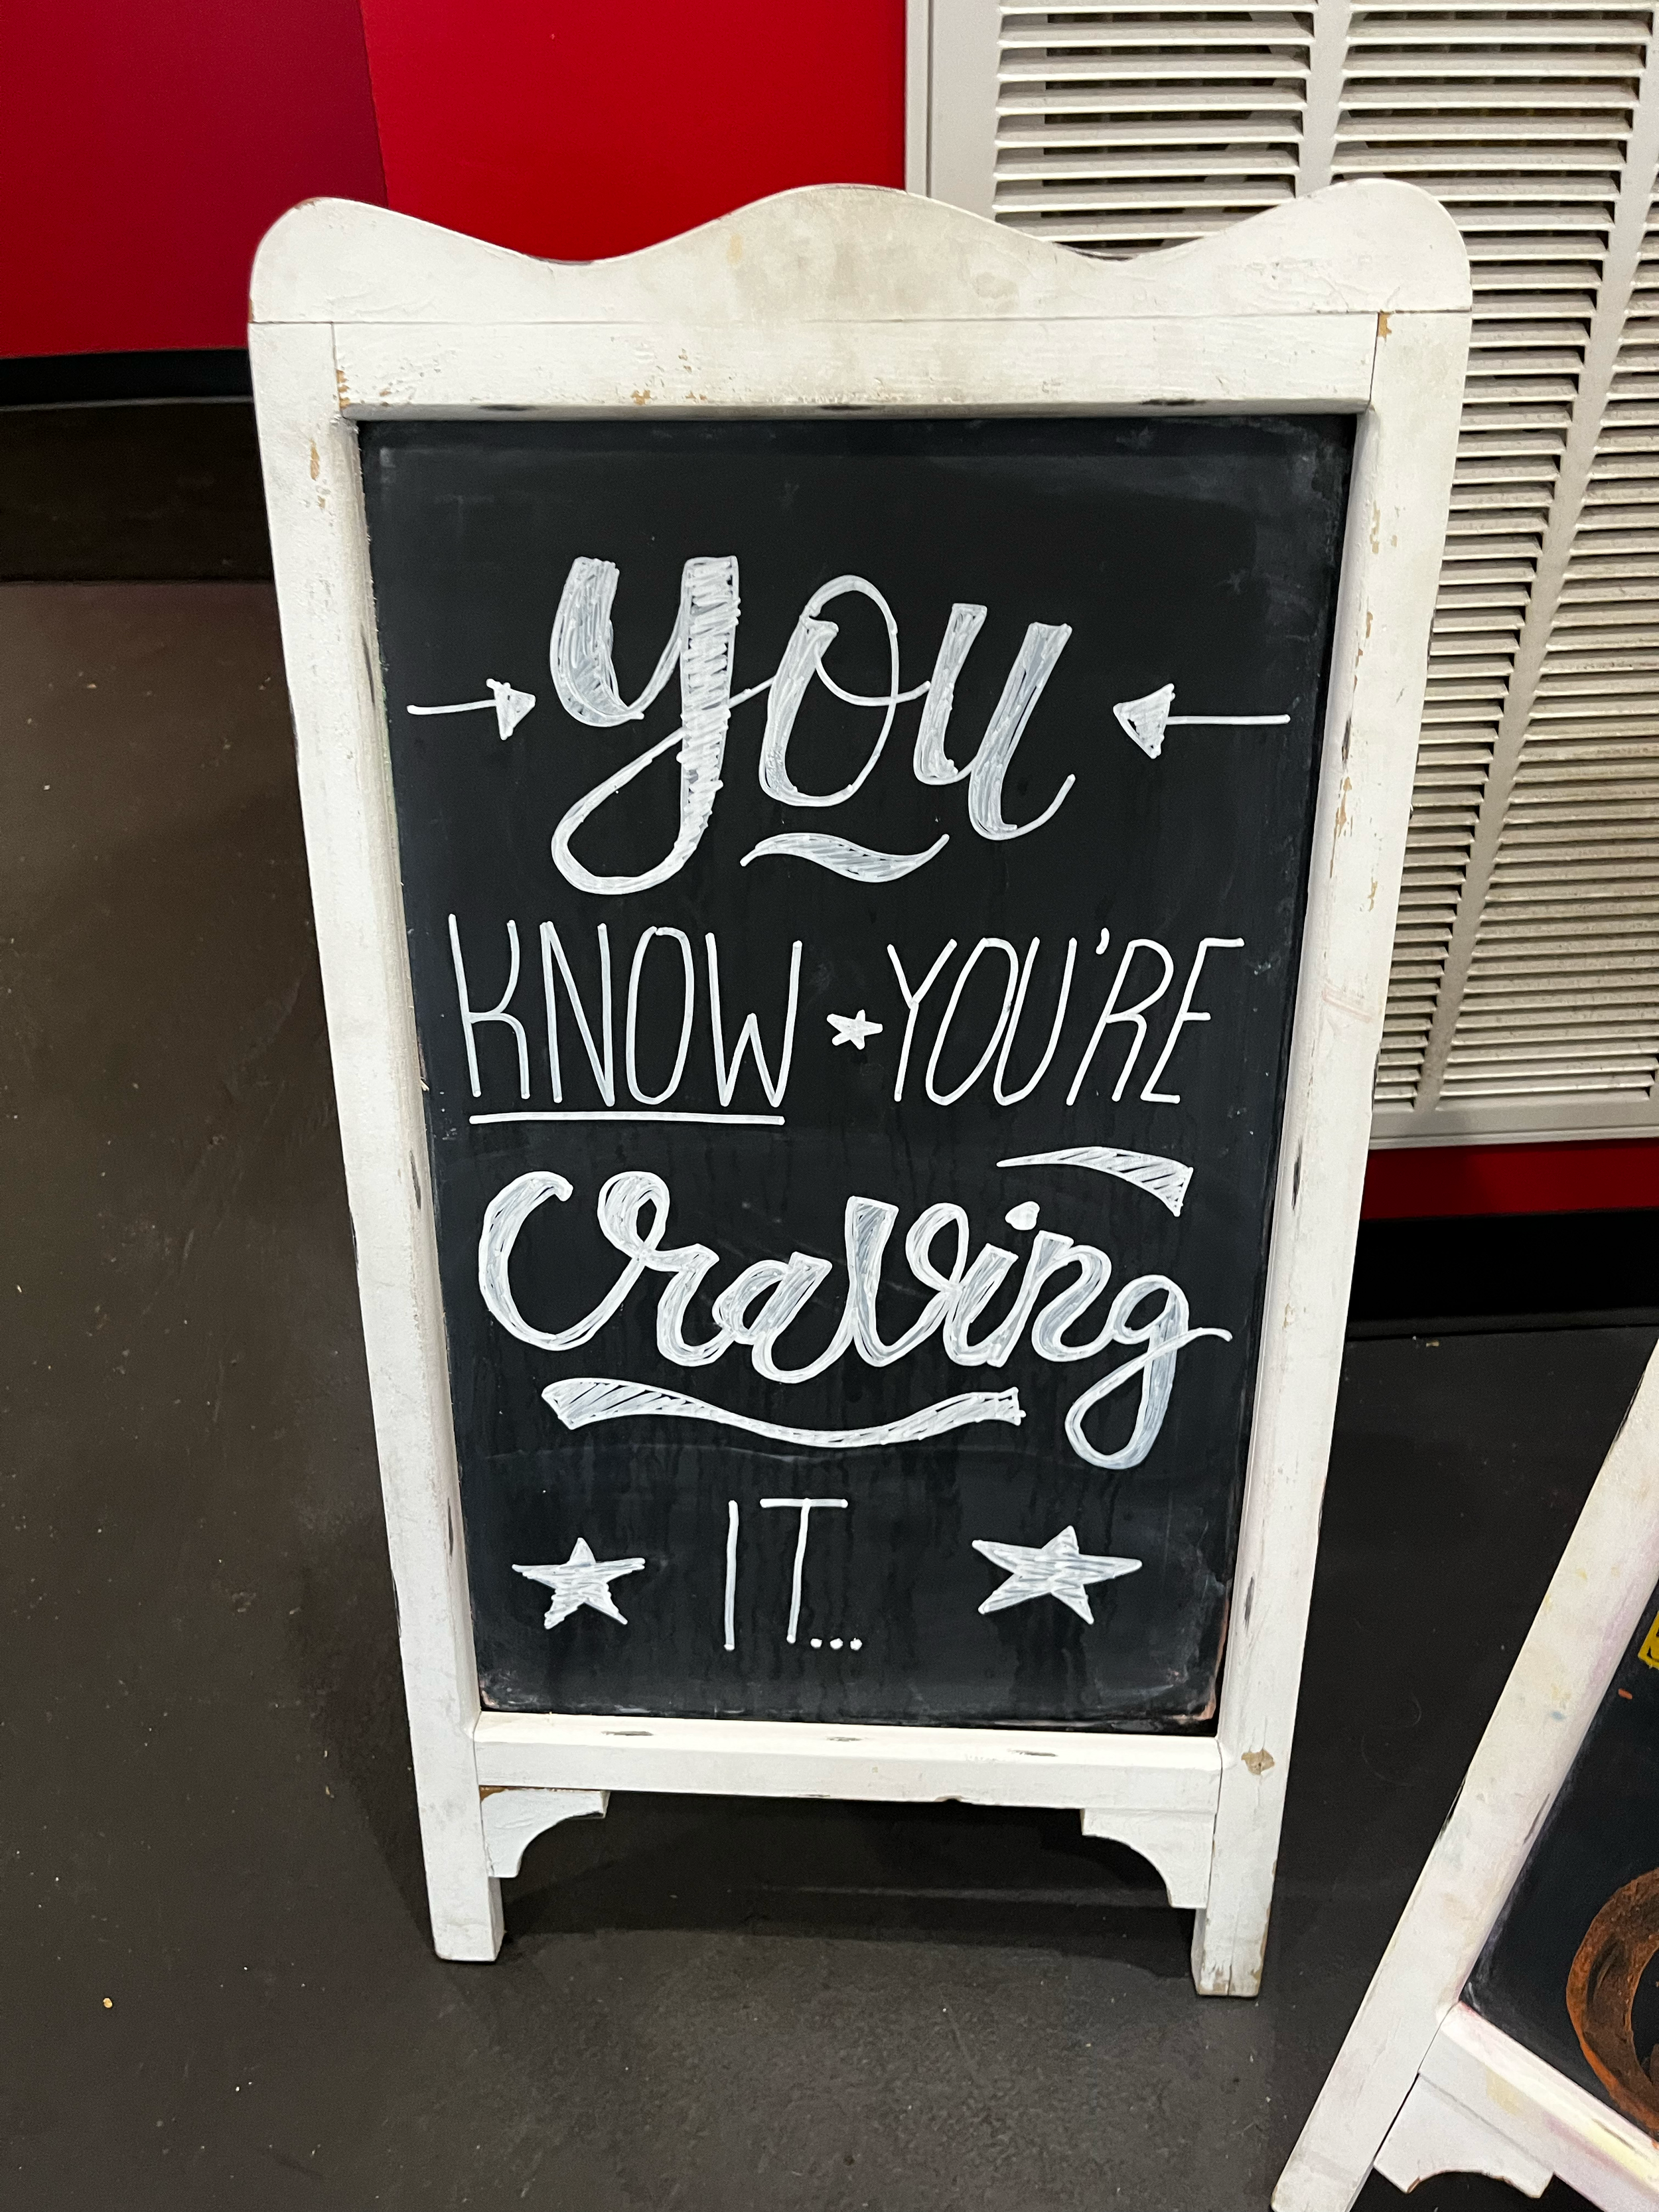 you
KNOW YOU'RE
Craving
IT...